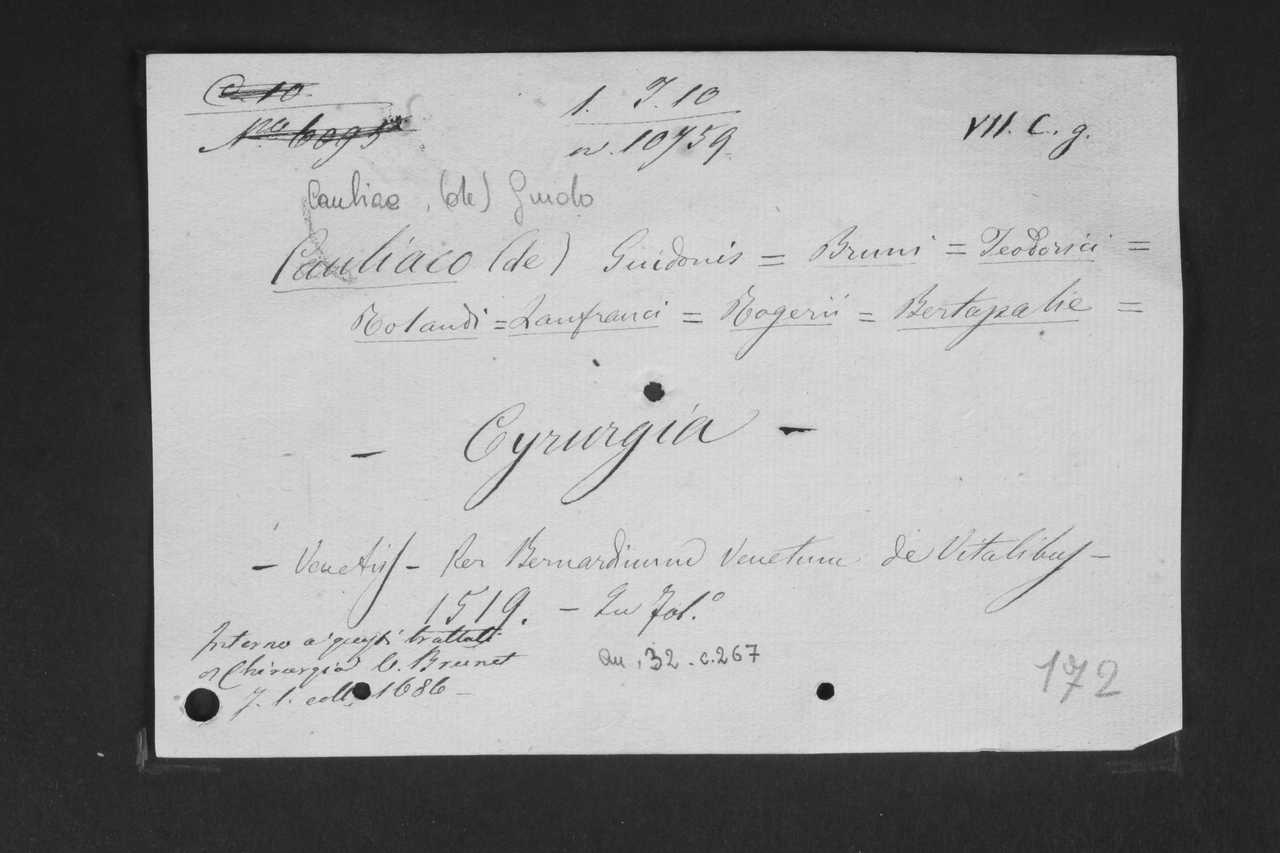 C. 10
1. J. 10
VII. C. g.
N.ro 6095
n. 10759
Cauliac, (de) Guido
Cauliaco (de) Guidonis = Bruni = Teodorici =
Rolandi = Lanfranci = Rogerii = Bertapalie =
- Cyrurgia -
- Venetiis - Per Bernardinum Venetum de Vitalibus -
1519. - In fol.º
Intorno a' questi trattati
di Chirurgia V. Brunet
T. 1. coll. 1686 -
an. 32. c. 267
172